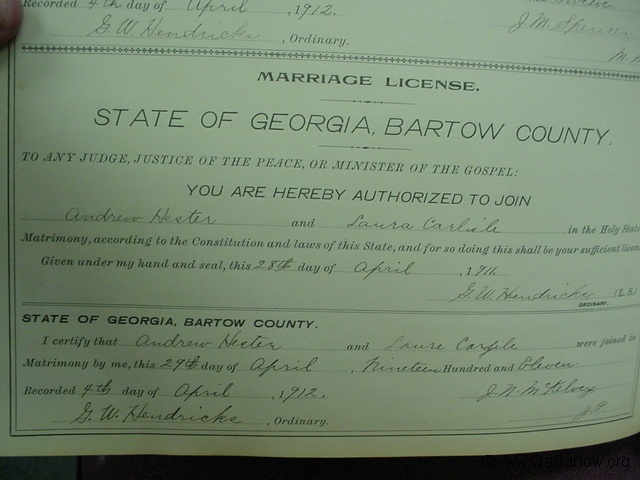 Recorded 4th day of April ,1912.
G.W. Hendricks , Ordinary.
J.M. Spencer
MARRIAGE LICENSE.
STATE OF GEORGIA, BARTOW COUNTY.
TO ANY JUDGE, JUSTICE OF THE PEACE, OR MINISTER OF THE GOSPEL:
YOU ARE HEREBY AUTHORIZED TO JOIN
Andrew Hester and Laura Carlisle in the Holy State
Matrimony, according to the Constitution and laws of this State, and for so doing this shall be your sufficient licen
Given under my hand and seal, this 28th day of April , 1911.
G.W. Hendricks (L.S.)
ORDINARY.
STATE OF GEORGIA, BARTOW COUNTY.
I certify that Andrew Hester and Laura were joined in
Matrimony by me, this 29th day of April , Nineteen Hundred and Eleven.
Recorded 4th day of April ,1912. J.N. McKelvey
G.W. Hendricks , Ordinary. J.P.
©www.GaBartow.org